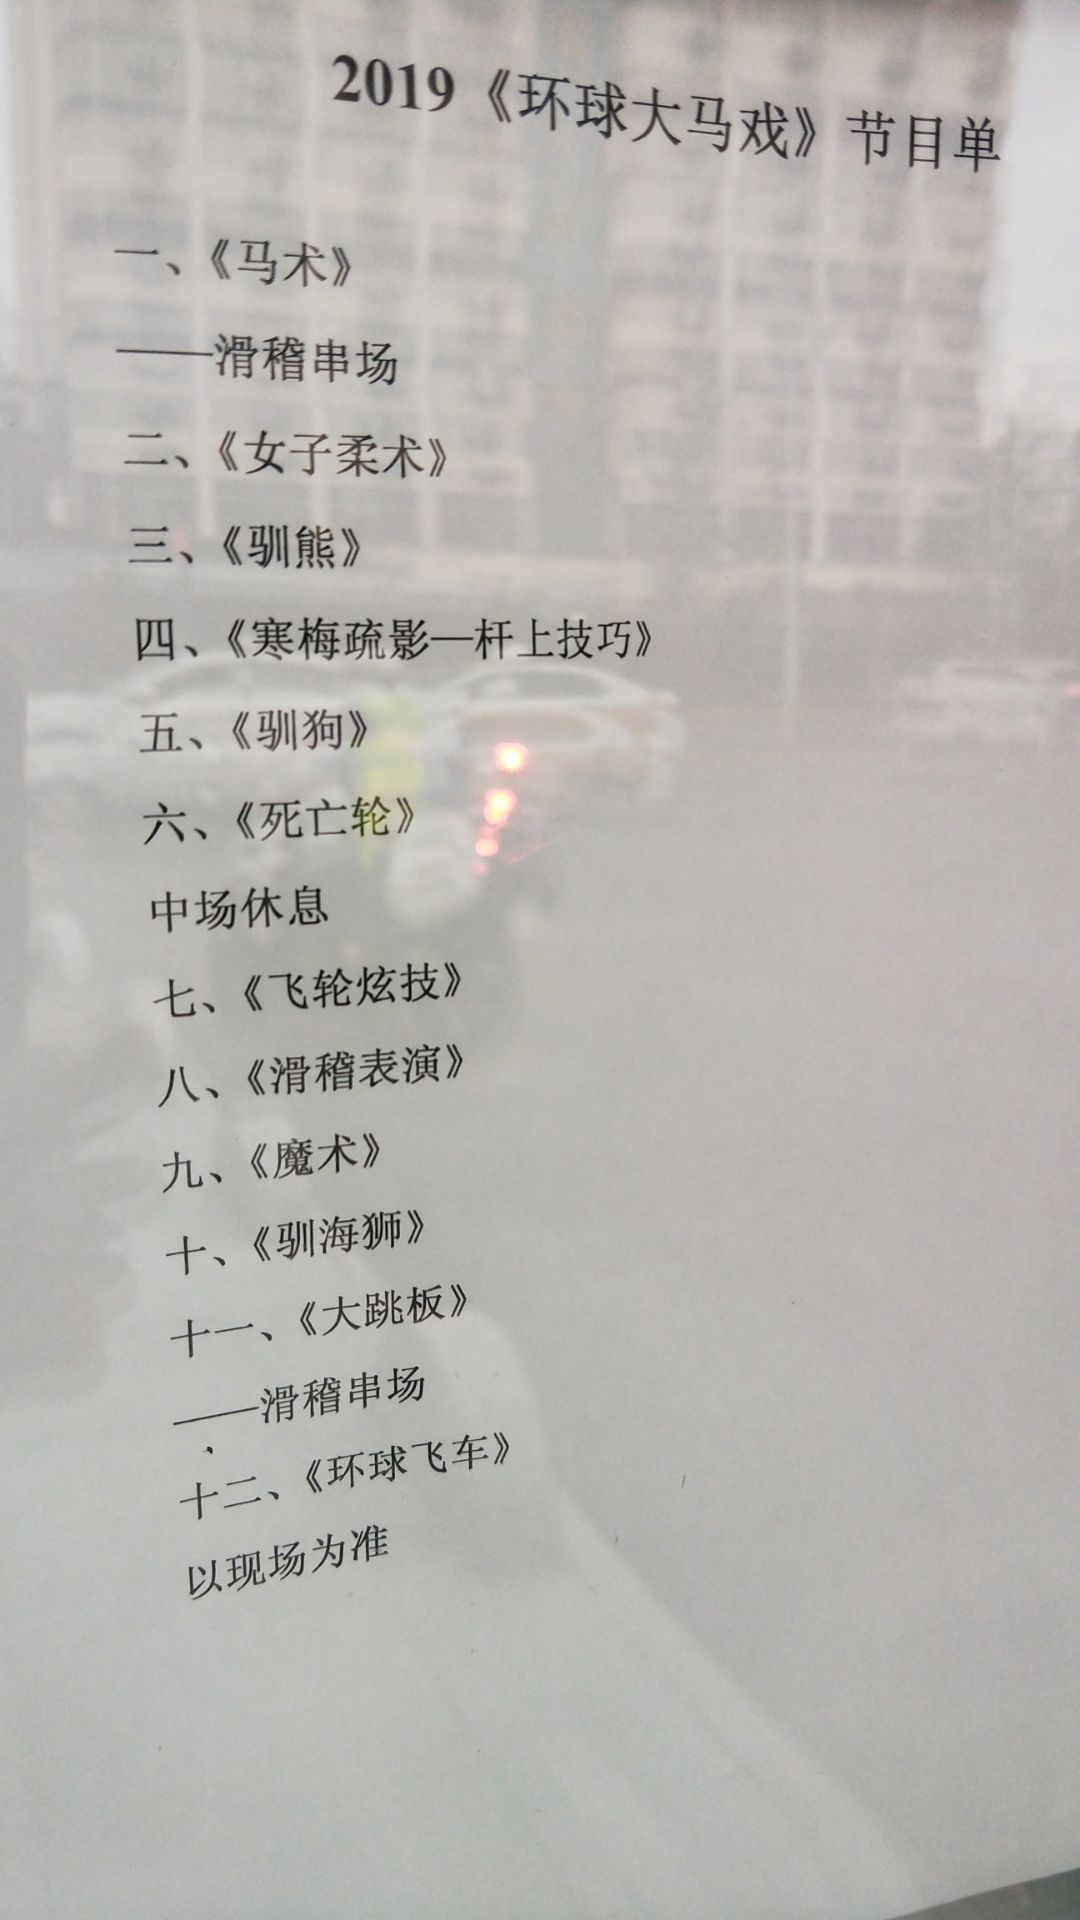 2019《环球大马戏》节目单
一、《马术》
——滑稽串场
二、《女子柔术》
三、《驯熊》
四、《寒梅疏影—杆上技巧》
五、《驯狗》
六、《死亡轮》
中场休息
七、《飞轮炫技》
八、《滑稽表演》
九、《魔术》
十、《驯海狮》
十一、《大跳板》
——滑稽串场
十二、《环球飞车》
以现场为准